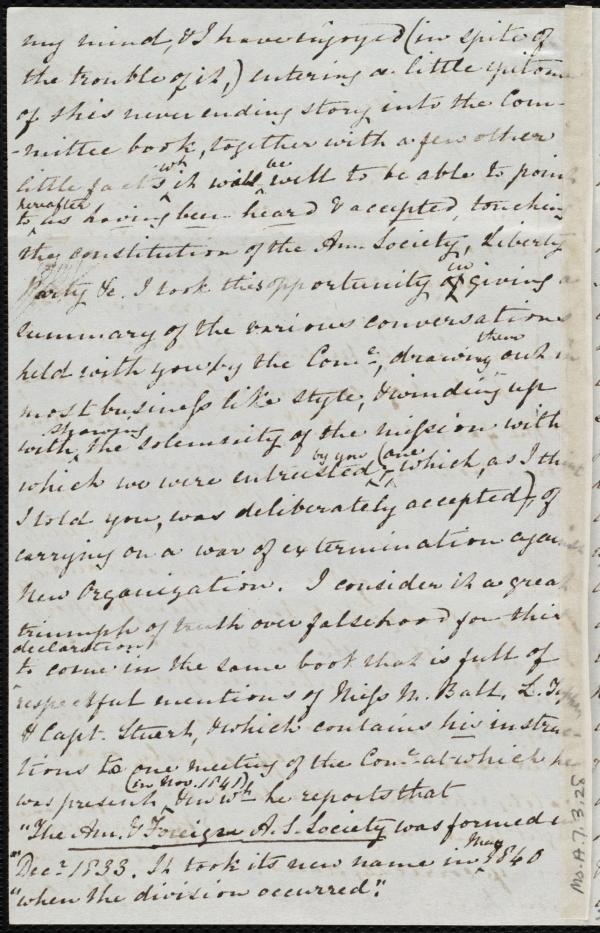 my mind, & I have enjoyed (in spite of
the trouble of it,) entering a little epitome
of this never ending story into the Com-
-mittee book, together with a few other
little facts wh it would be well to be able to point
hereafter
to as having been heard & accepted, touching
the constitution of the Am. Society, Liberty
Party &c. I took this opportunity in giving a
summary of the various conversations
held with you by the Com.ee, drawing them out in
most business like style, & winding up
with showing the solemnity of the mission with
which we were entrusted by you (one which, as I think
I told you, was deliberately accepted), of
carrying on a war of extermination against
New Organization. I consider it a great
triumph of truth over falsehood for this
declaration
to come in the same book that is full of
respectful mentions of Miss M. Ball, L. Tappan
& Capt. Stuart, & which contains his instruc-
tions to one meeting of the Com.ee at which he
was present (in Nov. 1841) & in wh he reports that
"The Am. & Foreign A. S. Society was formed in
"Dec.r 1833. It took its new name in May 1840
"when the division occurred".
Ms.A.7.3.28